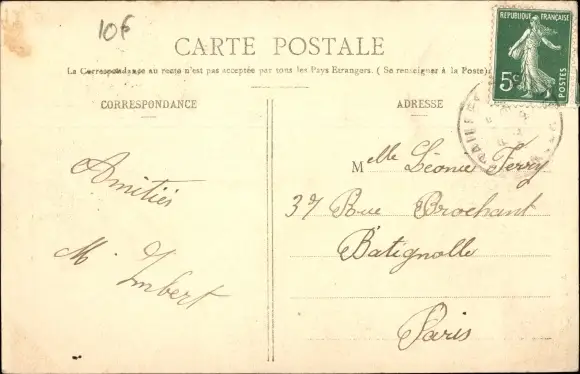 10 F
CARTE POSTALE
La Correspondance au recto n'est pas acceptée par tous les Pays Etrangers. ( Se renseigner à la Poste)
CORRESPONDANCE
Amitiés
M. Imbert
ADRESSE
Melle Léonie Ferry
37 Rue Brochant
Batignolle
Paris
REPUBLIQUE FRANÇAISE
5c
POSTES